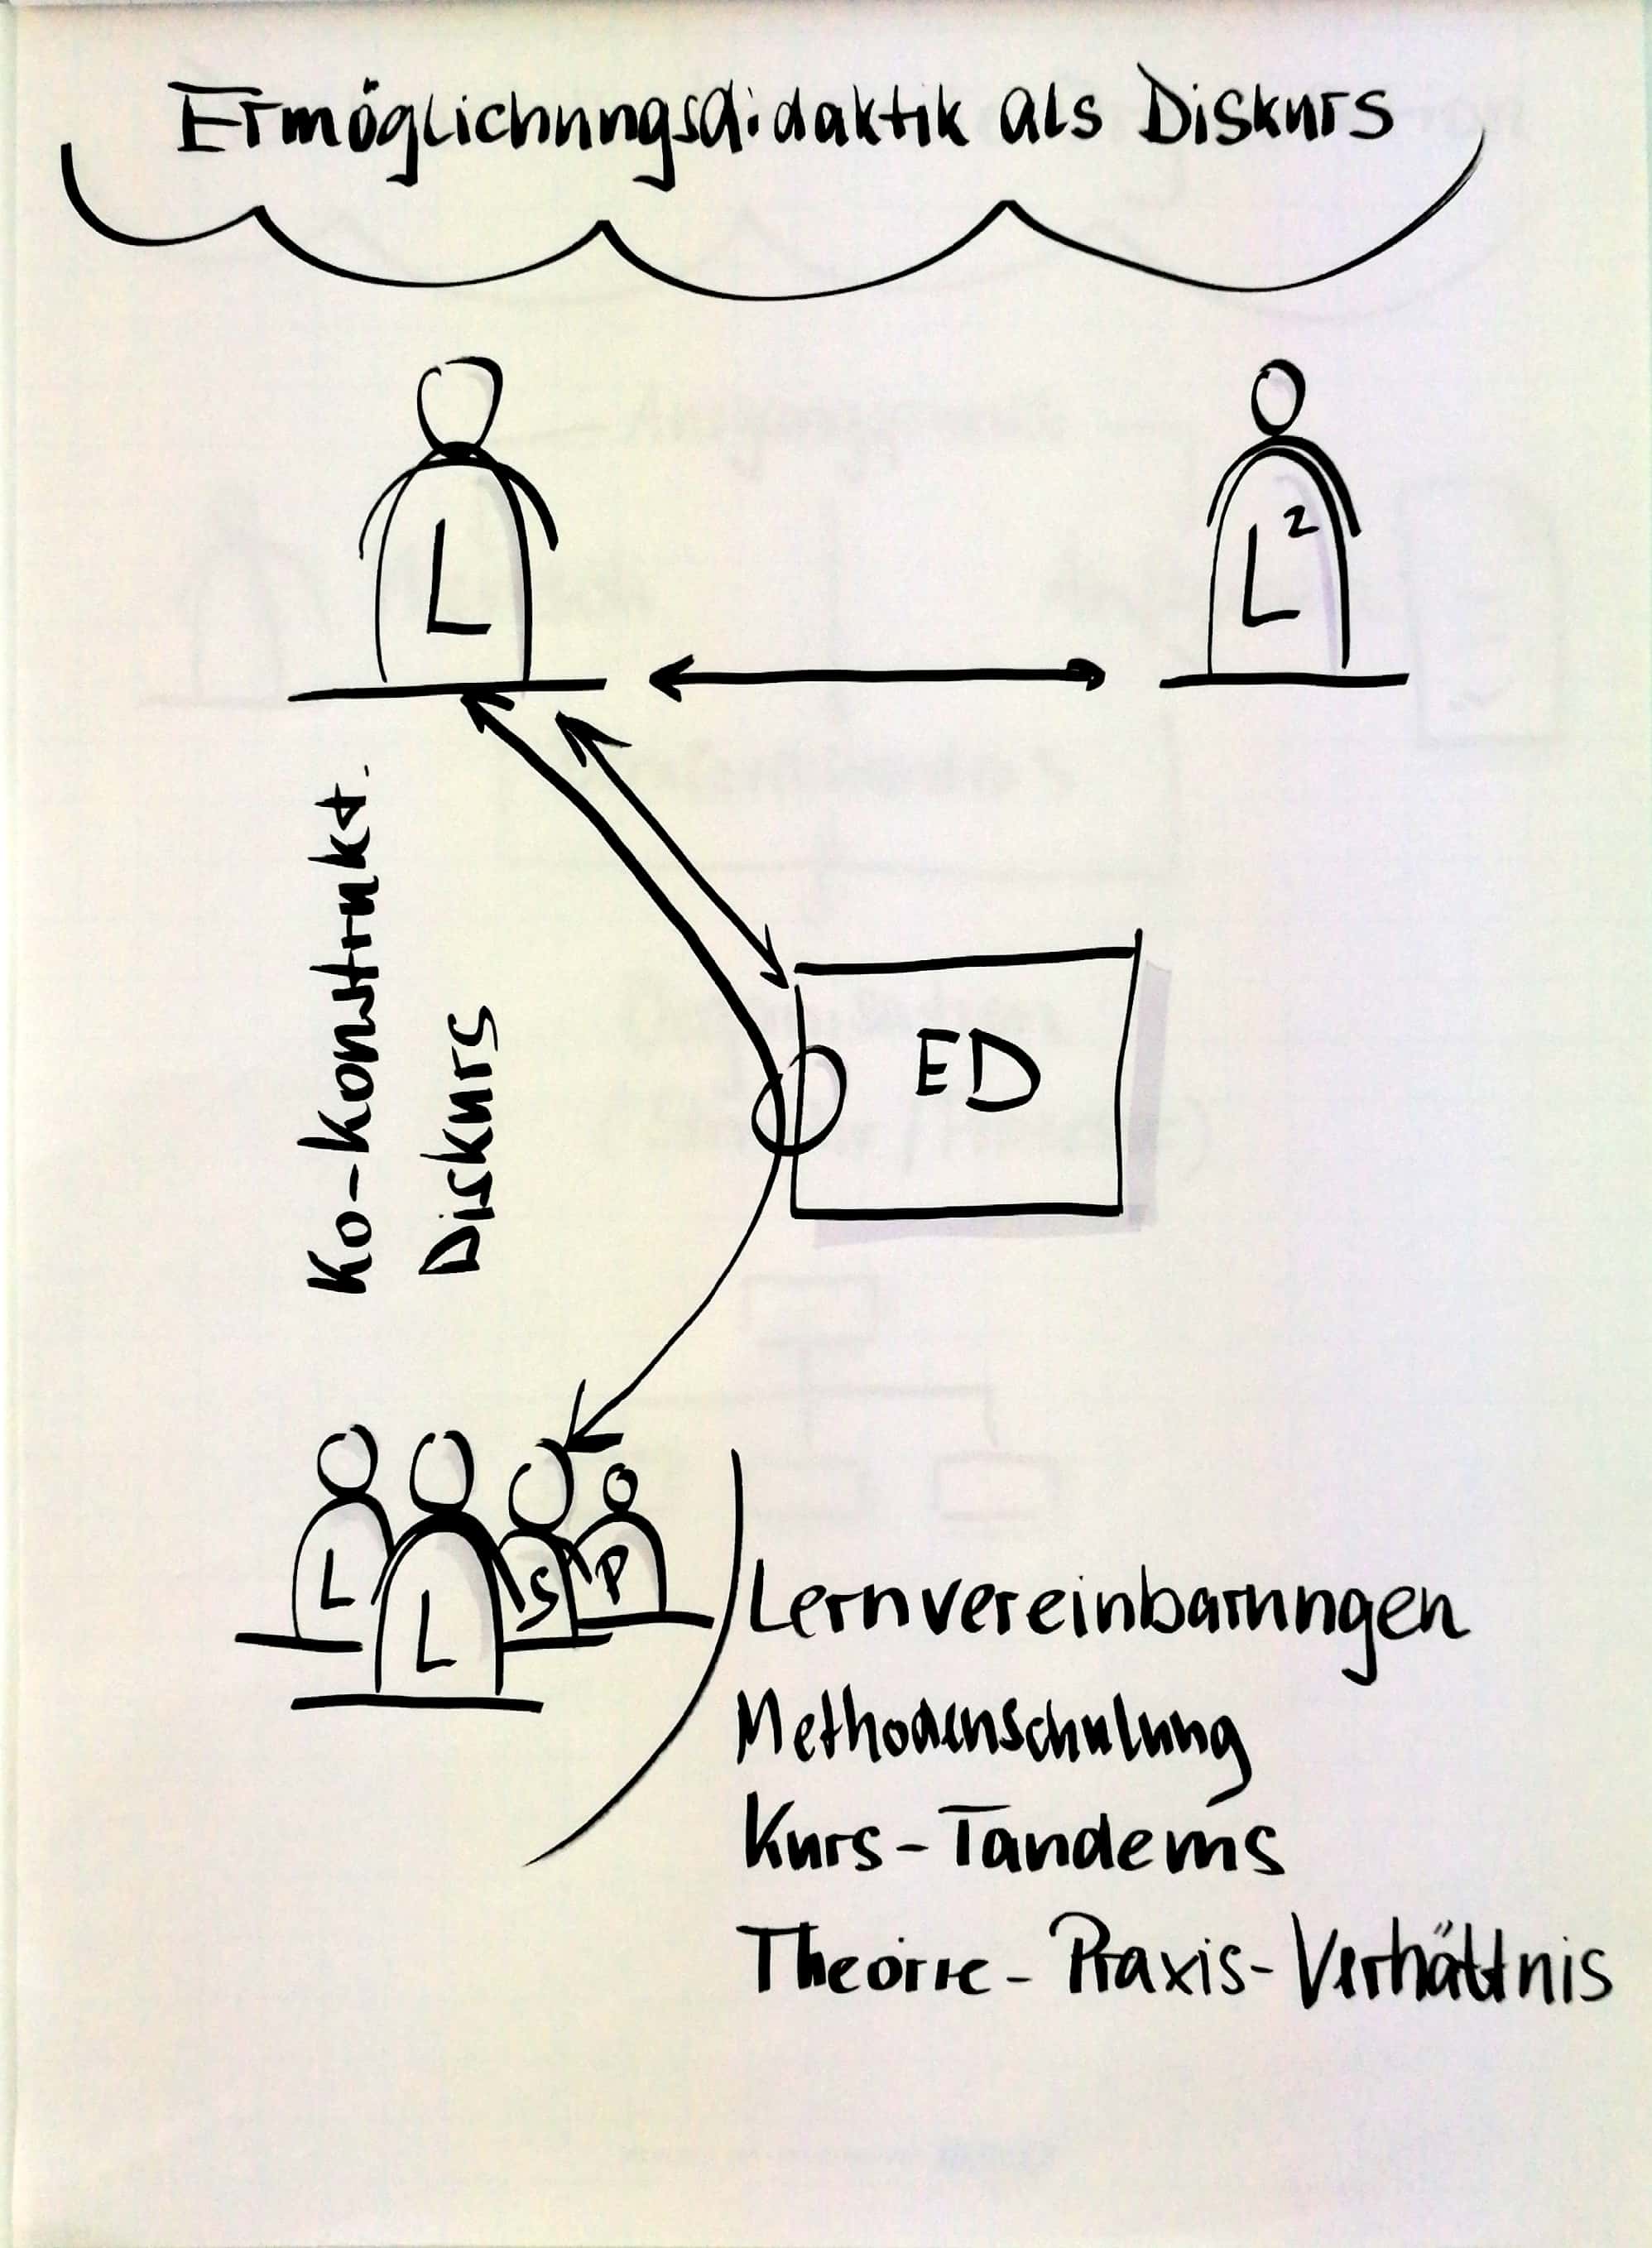 Ermöglichungsdidaktik als Diskurs
L
L²
Ko-Konstrukt.
Diskurs
ED
L
L
S
P
Lernvereinbarungen
Methodenschulung
Kurs-Tandems
Theorie-Praxis-Verhältnis